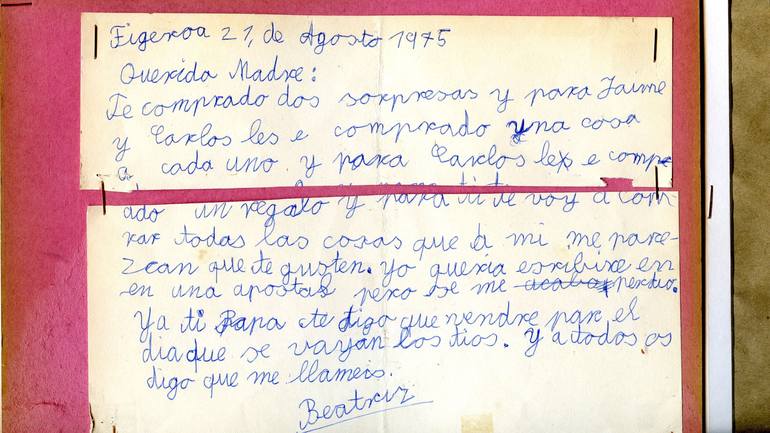 Figeroa 21, de Agosto 1975
Querida Madre:
Te comprado dos sorpresas y para Jaime
y Carlos les e comprado una cosa
a cada uno y para Carlos les e compr
ado un regalo y para ti te voy a com
rar todas las cosas que a mi me pare-
zcan que te gusten. yo queria escribire en
en una apostal pero se me acabar perdio.
Ya ti Papa te digo que vendre par el
dia que se vayan los tios. Y a todos os
digo que me llameis.
Beatriz